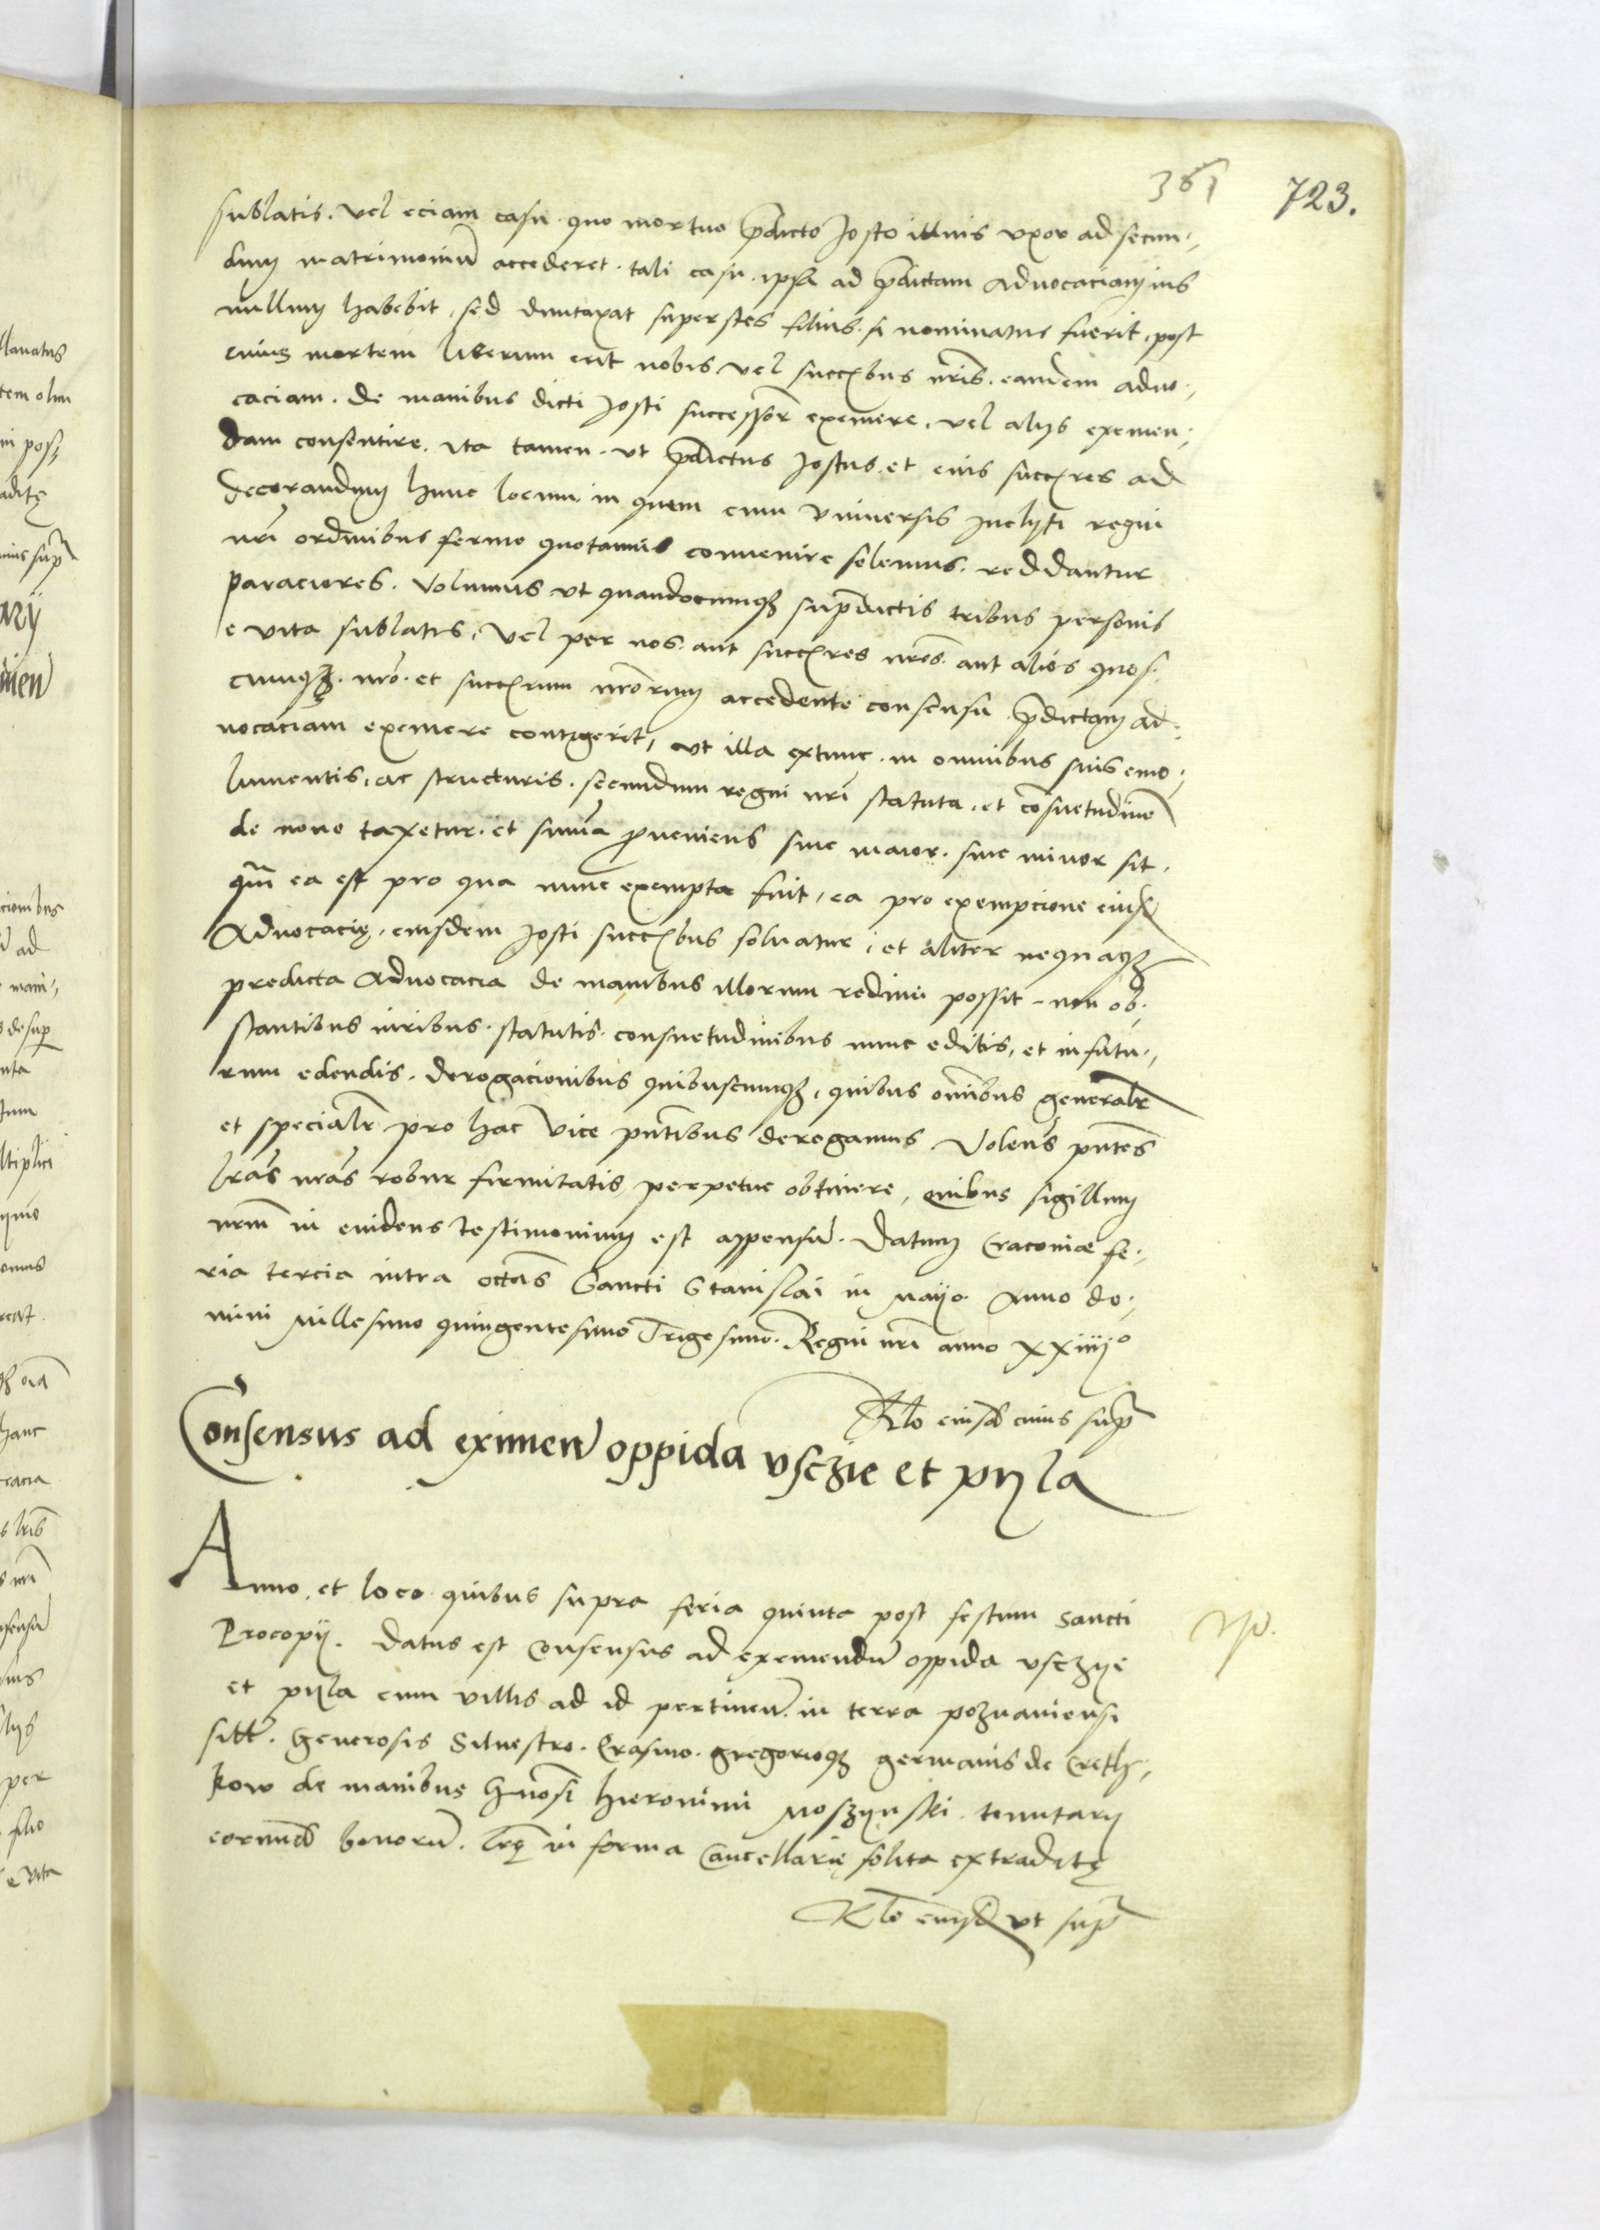 361 723.
sublatis. vel eciam casu quo mortuo p̄dicto Josto illius vxor ad secun,
dum matrimoniū accederet. tali casu. ipsa ad p̄dictam Aduocaciam ius
nullum habebit, sed duntaxat superstes filius. si nominatus fuerit, post
cuius mortem liberum erit nobis vel succ̄ribus nr̄is. eandem aduo,
caciam. de manibus dicti Josti successor̄ exemere, vel alijs exemen,
dam consentire. ita tamen. vt p̄dictus Jostus. et eius succ̄res ad
decorandum hunc locum in quem cum vniuersis Inclyti regni
nr̄i ordinibus ferme quotannis conuenire solemus. reddantur
paraciores. Volumus vt quandocunqʒ sup̄dictis tribus personis
e vita sublatis, vel per nos. aut succ̄res nr̄os. aut alios quos,
cunqʒ. nr̄o. et succ̄rum nr̄orum accedente consensu p̄dictam ad,
uocaciam exemere contigerit, vt illa extunc. in omnibus suis emo,
lumentis, ac structuris. secundum regni nr̄i statuta. et cōsuetudinē
de nouo taxetur. et sum̄a ꝓueniens siue maior. siue minor sit,
qm̄ ea est pro qua nunc exempta fuit, ea pro exempcione eiusd̄
Aduocacię, eiusdem Josti succ̄ribus soluatur, et aliter nequaqʒ
predicta Aduocacia de manibus illorum redimi possit. non ob,
stantibus iuribus. statutis. consuetudinibus nunc editis, et in futu,
rum edendis. derogacionibus quibuscunqʒ, quibus om̄ibus generalr̄
et specialr̄ pro hac vice pn̄tibus derogamus. Volen̄s pn̄tes
lr̄as nr̄as robur firmitatis perpetue obtinere, quibus sigillum
nr̄m in euidens testimonium est appensū. Datum Cracouiæ fe,
ria tercia intra octās Sancti Stanislai in Mayo. Anno do,
mini Millesimo quingentesimo Trigesimo. Regni nr̄i anno xxiiijº
Rlō eiusd̄ cuius sup̄
Consensus ad eximen̄ oppida vsczie et pyla
Anno et loco quibus supra feria quinta post festum Sancti
Procopij. Datus est Consensus ad exemendū oppida vsczye
et pyla cum villis ad id pertineñ. in terra poznaniensi
sitt̄. Generosis Siluestro. Erasmo. gregorioqʒ germanis de Creth,
kow de manibus Gn̄osi hieronimi Moszynski. tenutarij
eorund̄ bonorū. lr̄ę in forma Cancellarię solita extraditę
Rlō eiusd̄ vt sup̄